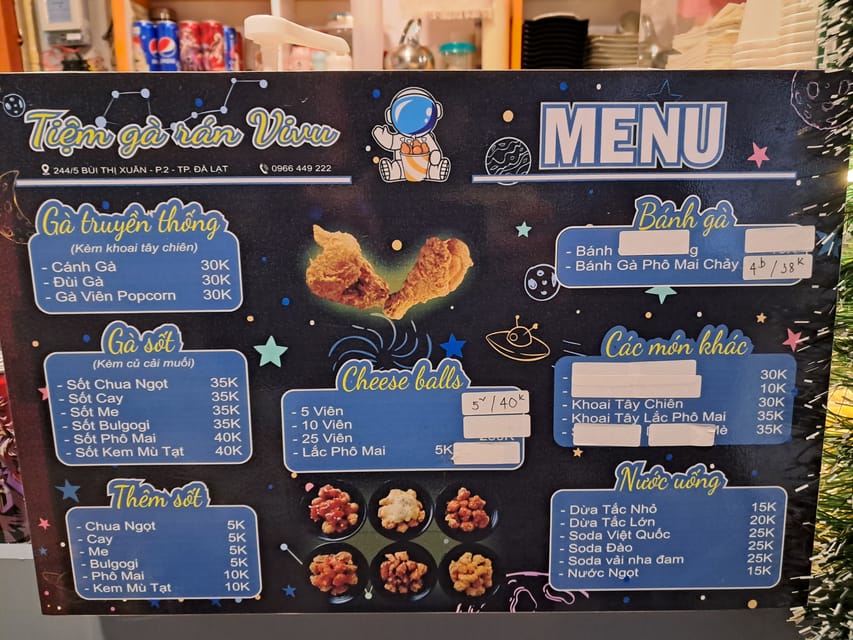 Tiệm gà rán Vivu
244/5 BÙI THỊ XUÂN - P.2 - TP. ĐÀ LẠT
0966 449 222
MENU
pepsi
Gà truyền thống
(Kèm khoai tây chiên)
- Cánh Gà 30K
- Đùi Gà 30K
- Gà Viên Popcorn 30K
Gà sốt
(Kèm củ cải muối)
- Sốt Chua Ngọt 35K
- Sốt Cay 35K
- Sốt Me 35K
- Sốt Bulgogi 35K
- Sốt Phô Mai 40K
- Sốt Kem Mù Tạt 40K
Thêm sốt
- Chua Ngọt 5K
- Cay 5K
- Me 5K
- Bulgogi 5K
- Phô Mai 10K
- Kem Mù Tạt 10K
Cheese balls
- 5 Viên 5v/40K
- 10 Viên
- 25 Viên
- Lắc Phô Mai 5K
Bánh gà
- Bánh
- Bánh Gà Phô Mai Chảy
Các món khác
- 30K
- 10K
- Khoai Tây Chiên 30K
- Khoai Tây Lắc Phô Mai 35K
- 35K
Nước uống
- Dừa Tắc Nhỏ 15K
- Dừa Tắc Lớn 20K
- Soda Việt Quốc 25K
- Soda Đào 25K
- Soda vải nha đam 25K
- Nước Ngọt 15K